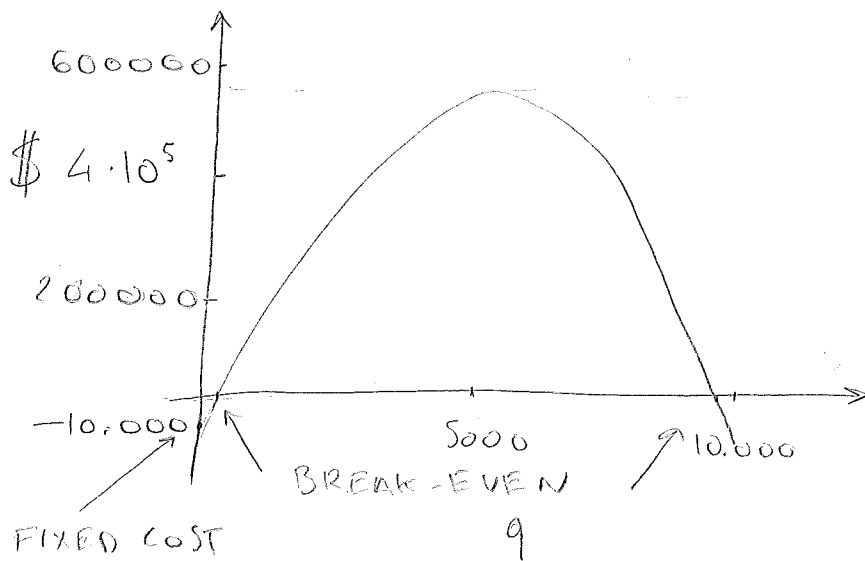 600000
$ 4·10⁵
200000
-10.000
5000
10.000
BREAK-EVEN
FIXED COST
q